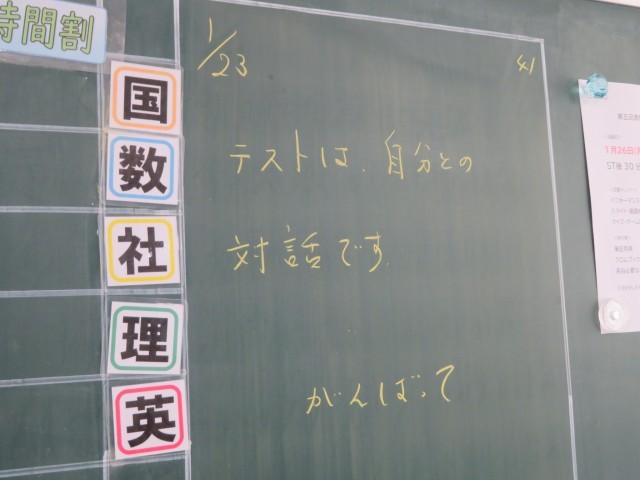 時間割
国
数
社
理
英
1/23
41
テストは、自分との
対話です.
がんばって
1月26日
ST後 30分